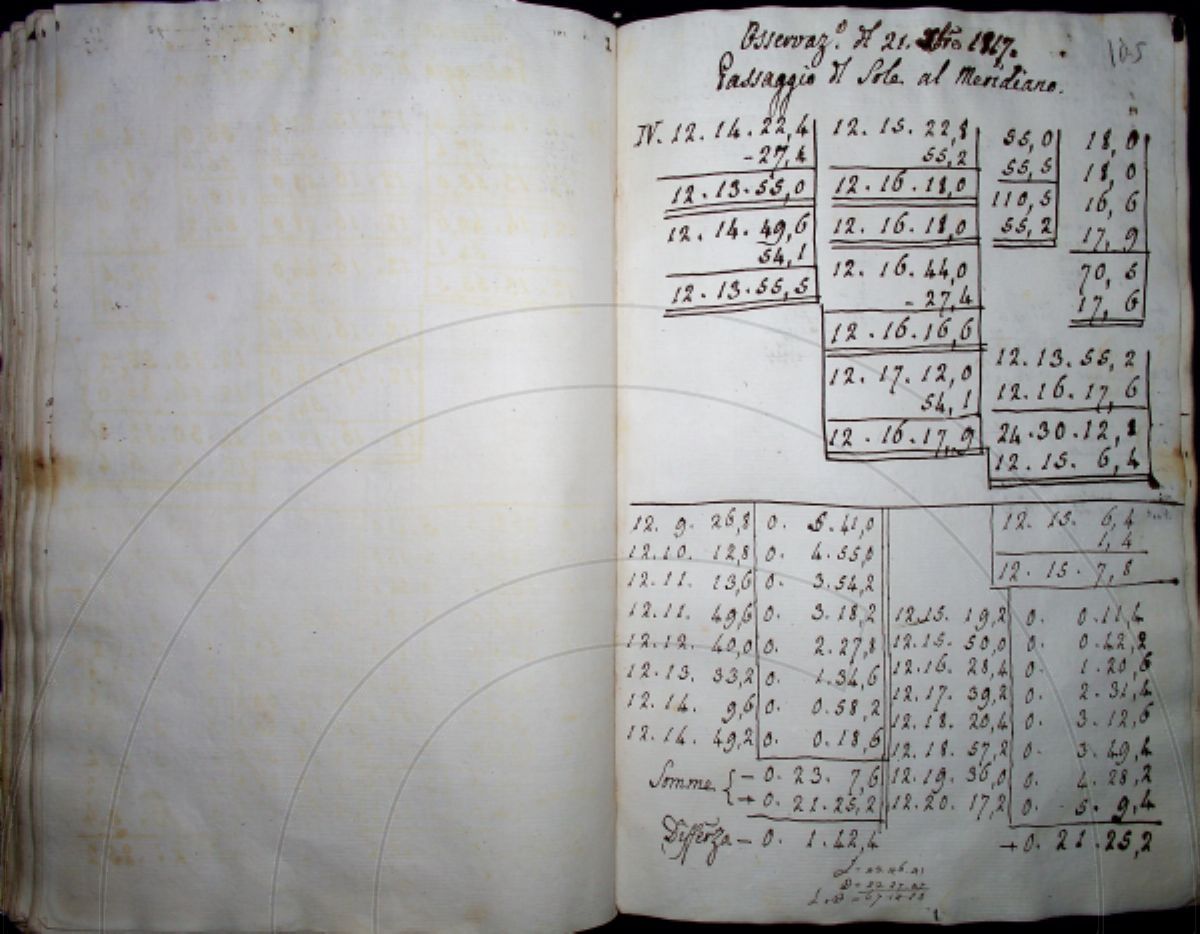 Osservaz.e di 21. Xbre 1817.
105
Passaggio di Sole al Meridiano.
IV. 12. 14. 22,4
- 27,4
12. 13. 55,0
12. 14. 49,6
54,1
12. 13. 55,5
12. 15. 22,8
55,2
12. 16. 18,0
12. 16. 18,0
12. 16. 44,0
- 27,4
12. 16. 16,6
12. 17. 12,0
54,1
12. 16. 17,9
55,0
55,5
110,5
55,2
18,0
18,0
16,6
17,9
70,5
17,6
12. 13. 55,2
12. 16. 17,6
24. 30. 12,8
12. 15. 6,4
12. 9. 26,8 0. 5. 41,0
12. 10. 12,8 0. 4. 55,0
12. 11. 13,6 0. 3. 54,2
12. 11. 49,6 0. 3. 18,2
12. 12. 40,0 0. 2. 27,8
12. 13. 33,2 0. 1. 34,6
12. 14. 9,6 0. 0. 58,2
12. 14. 49,2 0. 0. 18,6
Somme { - 0. 23. 7,6
+ 0. 21. 25,2
Differza - 0. 1. 42,4
12. 15. 6,4
1,4
12. 15. 7,8
12. 15. 19,2 0. 0. 11,4
12. 15. 50,0 0. 0. 42,2
12. 16. 28,4 0. 1. 20,6
12. 17. 39,2 0. 2. 31,4
12. 18. 20,4 0. 3. 12,6
12. 18. 57,2 0. 3. 49,4
12. 19. 36,0 0. 4. 28,2
12. 20. 17,2 0. 5. 9,4
+ 0. 21. 25,2